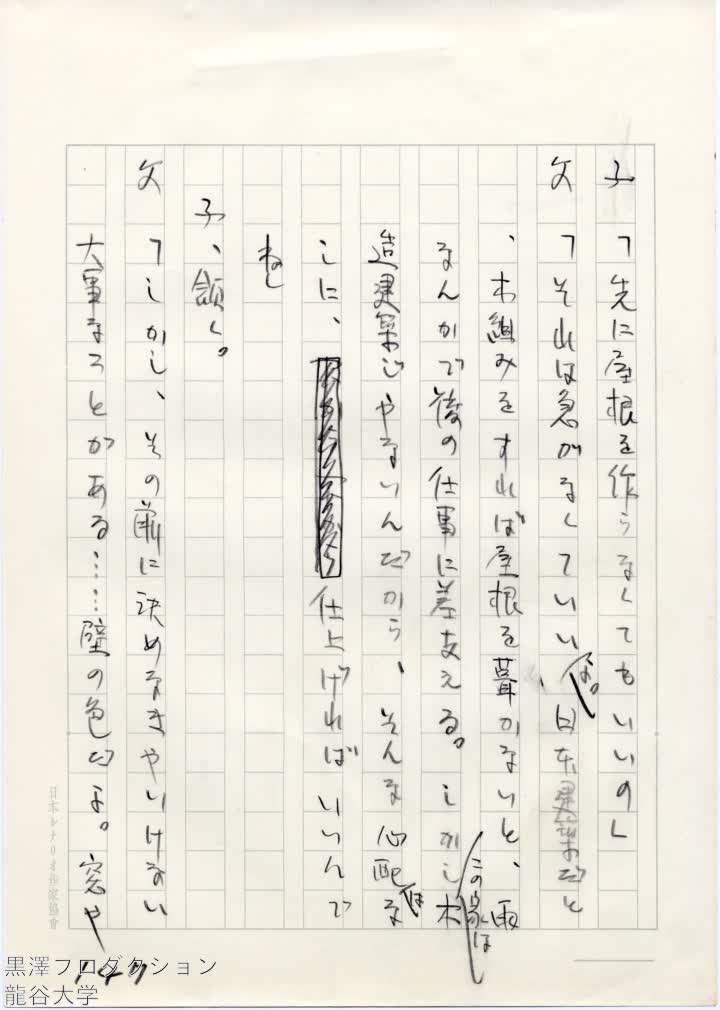 子「先に屋根を作らなくてもいいの」
父「それは急がなくていいよ。日本建築だと
、木組みをすれば屋根を葺かないと、雨
なんかで後の仕事に差支える。しかしこの家は木
造建築じゃないんだから、そんな心配はな
しに、仕上げればいいんで
ね」
子、頷く。
父「しかし、その前に決めなきゃいけない
大事なことがある……壁の色だよ。窓や
日本シナリオ作家協會
147
黒澤プロダクション
龍谷大学